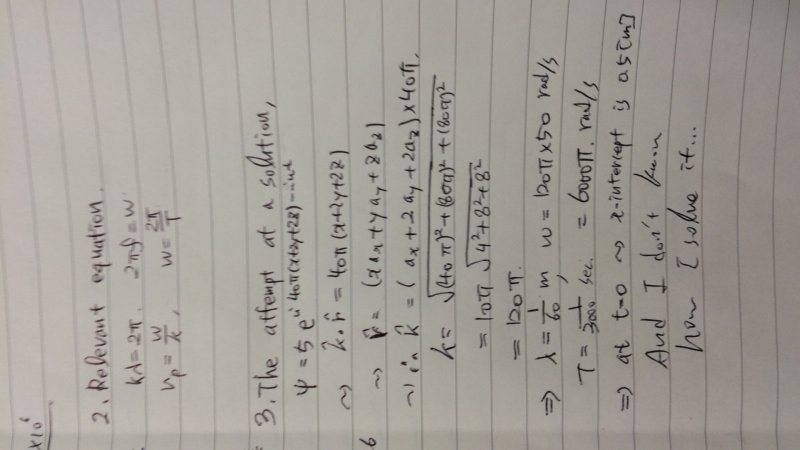 ×10⁶
2. Relevant equation.
kλ=2π. 2πf=w
v_p = w/k, w = 2π/T
3. The attempt at a solution,
ψ = 5 e^{i 40π(x+2y+2z)-iwt}
~> k̂·r̂ = 40π(x+2y+2z)
6 ~> r̂ = (x a_x + y a_y + z a_z)
k̂ = (a_x + 2 a_y + 2 a_z) × 40π.
k = √((40π)² + (80π)² + (80π)²)
= 10π √(4²+8²+8²)
= 120π.
⇒ λ = 1/60 m, w = 120π×50 rad/s
T = 1/3000 sec. = 6000π. rad/s
⇒ at t=0 ~> x-intercept is 0.5[m]
And I don't know
how I solve it...